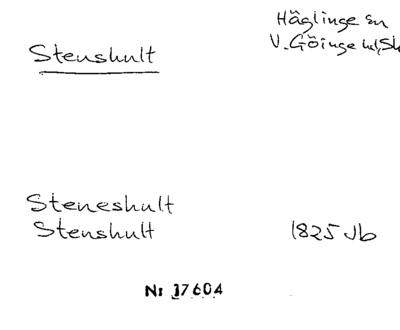 Häglinge sn
V. Göinge hd, Sk
Stenshult
Steneshult
Stenshult 1825 Jb
Nr 17604